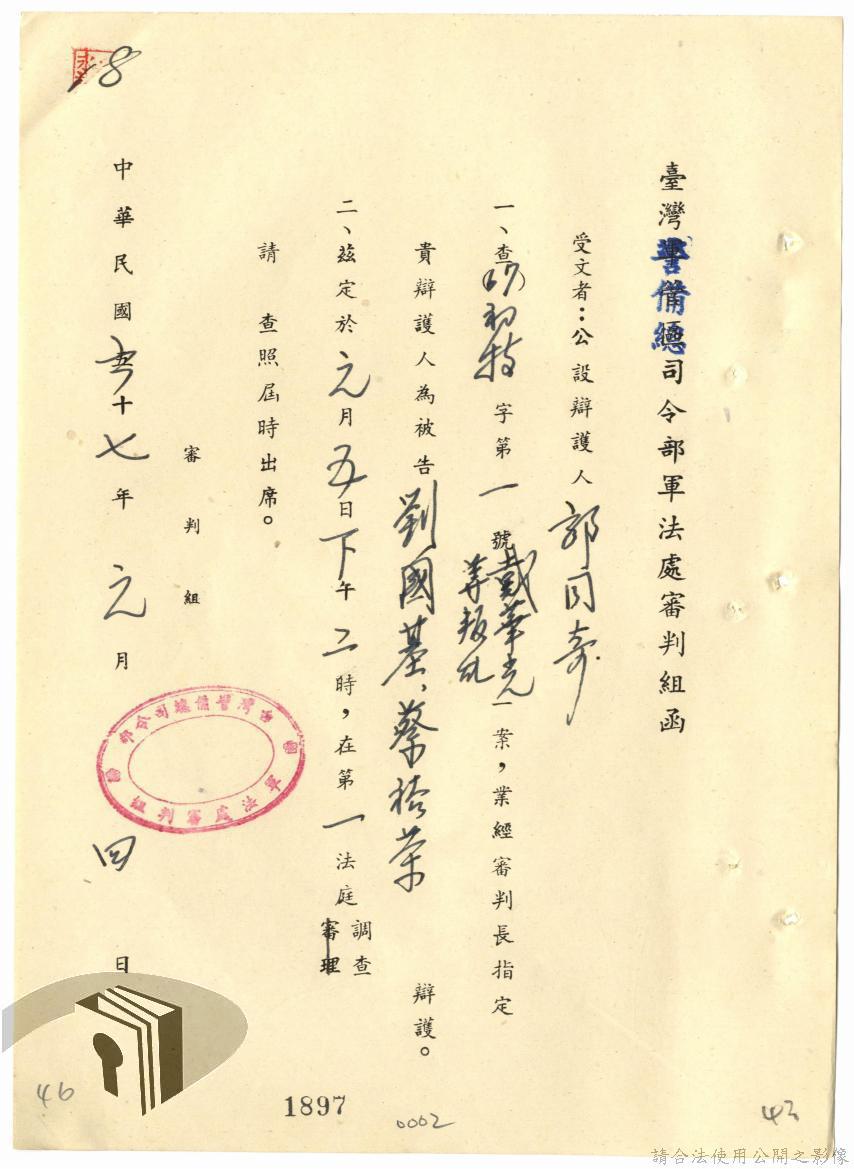 臺灣警備總司令部軍法處審判組函
受文者：公設辯護人 郭同奇
一、查(67)初特字第一號戴華光等叛亂一案，業經審判長指定
貴辯護人為被告劉國基、蔡裕榮辯護。
二、茲定於元月五日下午二時，在第一法庭調查審理
請 查照屆時出席。
審判組
中華民國六十七年元月四日
臺灣警備總司令部
軍法處審判組
8
46
1897
0002
請合法使用公開之影像